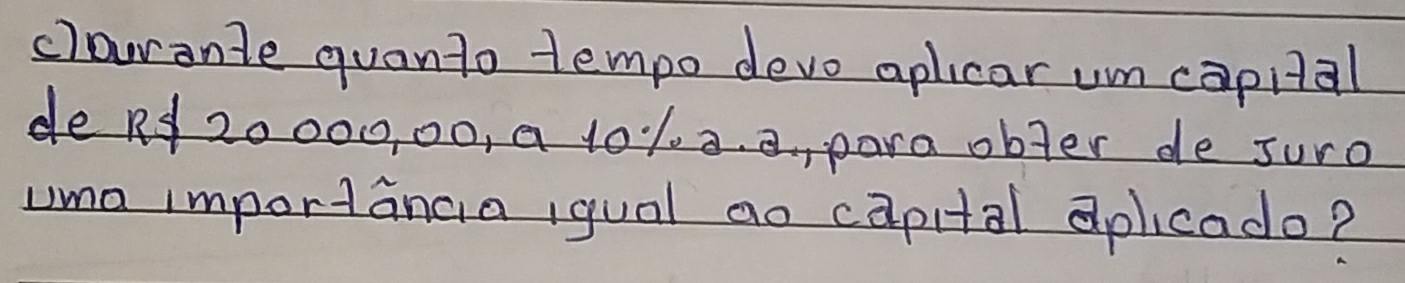 c) Durante quanto tempo devo aplicar um capital
de R$ 20 000,00, a 10% a.a., para obter de juro
uma importância igual ao capital aplicado?